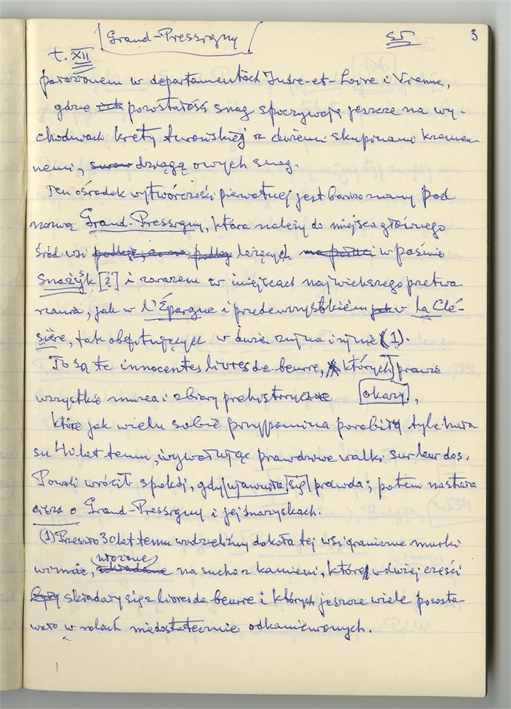 Grand-Pressigny
3
t. XII
w departamentach Indre-et-Loire i Vienne,
gdzie pozostałość spoczywają jeszcze na wy-
chodniach kredy turońskiej z dużemi skupinami krzemien-
nemi,
Ten ośrodek wytwórczości pierwotnej jest bardzo znany pod
nazwą Grand-Pressigny, która należy do miejsca głównego
śród wsi leżących w paśmie
[?] i zarazem w miejscach największego przetwa-
rzania, jak w l'Épargne i przedewszystkiem w la Clé-
sière, tak obfitujących w duże (1)
To są te innocentes livres de beurre, których prawie
wszystkie muzea i zbiory okazy,
które jak wielu sobie przypomina porobiły tyle huku
su 40 lat temu, wywołując prawdziwe walki sur leur dos.
Powoli wrócił spokój, gdy ujawniła się prawda; potem nastała
cisza o Grand-Pressigny i jej
(1) Przeszło 30 lat temu widzieliśmy dokoła tej wsi graniczne murki
winnic, włożone na sucho z kamieni, które w dużej części
składały się z livres de beurre i których jeszcze wiele pozosta-
wało w rolach niedostatecznie odkamienionych.